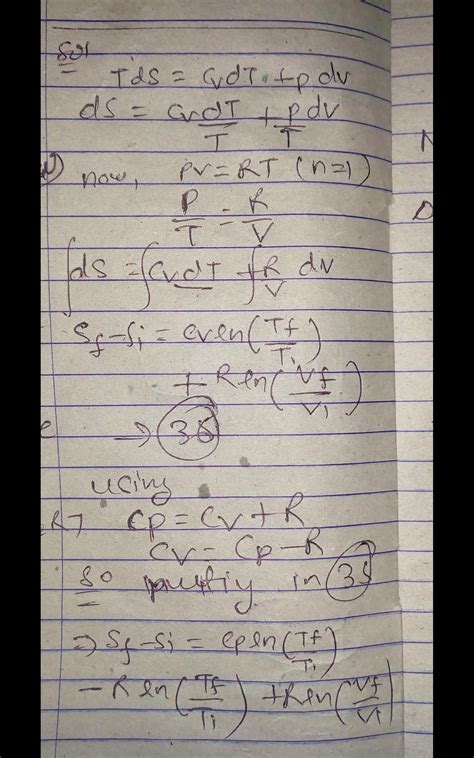 Sol
TdS = CvdT + pdv
dS = CvdT/T + pdv/T
now, PV = RT (n=1)
P/T = R/V
∫dS = ∫CvdT + ∫R/V dv
Sf-Si = cvln(Tf/Ti)
+ Rln(Vf/Vi)
⇒
using
Cp = Cv + R
Cv = Cp - R
so in 35
⇒ Sf-Si = Cpln(Tf/Ti)
- Rln(Tf/Ti) + Rln(Vf/Vi)